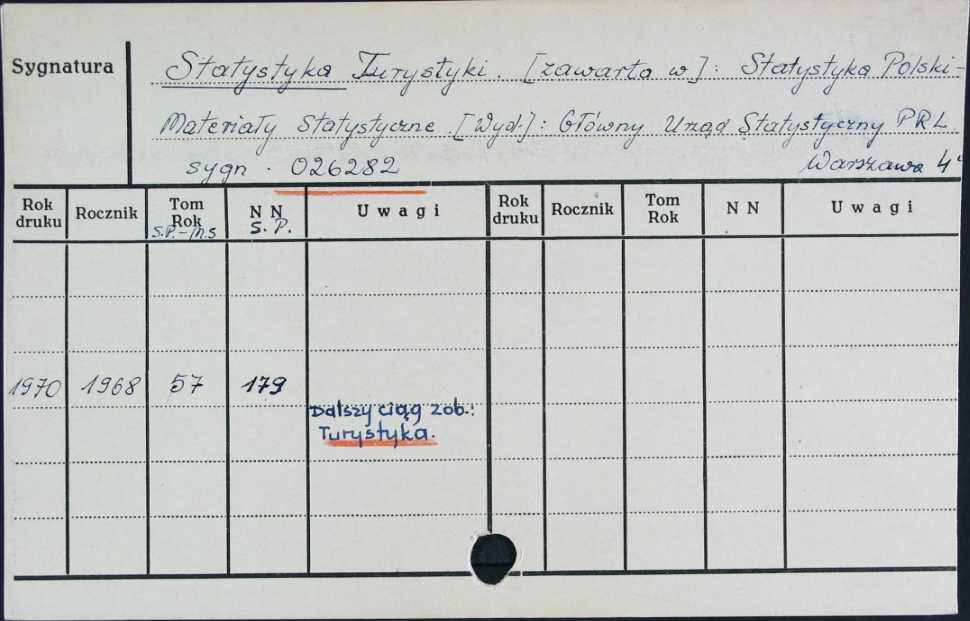 Sygnatura
Statystyka Turystyki. [zawarta w]: Statystyka Polski-
Materiały Statystyczne. [Wyd.]: Główny Urząd Statystyczny PRL.
sygn. 026282 Warszawa 4°
Rok druku Rocznik Tom Rok S.P.-M.S N N S.P. Uwagi Rok druku Rocznik Tom Rok N N Uwagi
1970 1968 57 179
Dalszy ciąg zob.:
Turystyka.